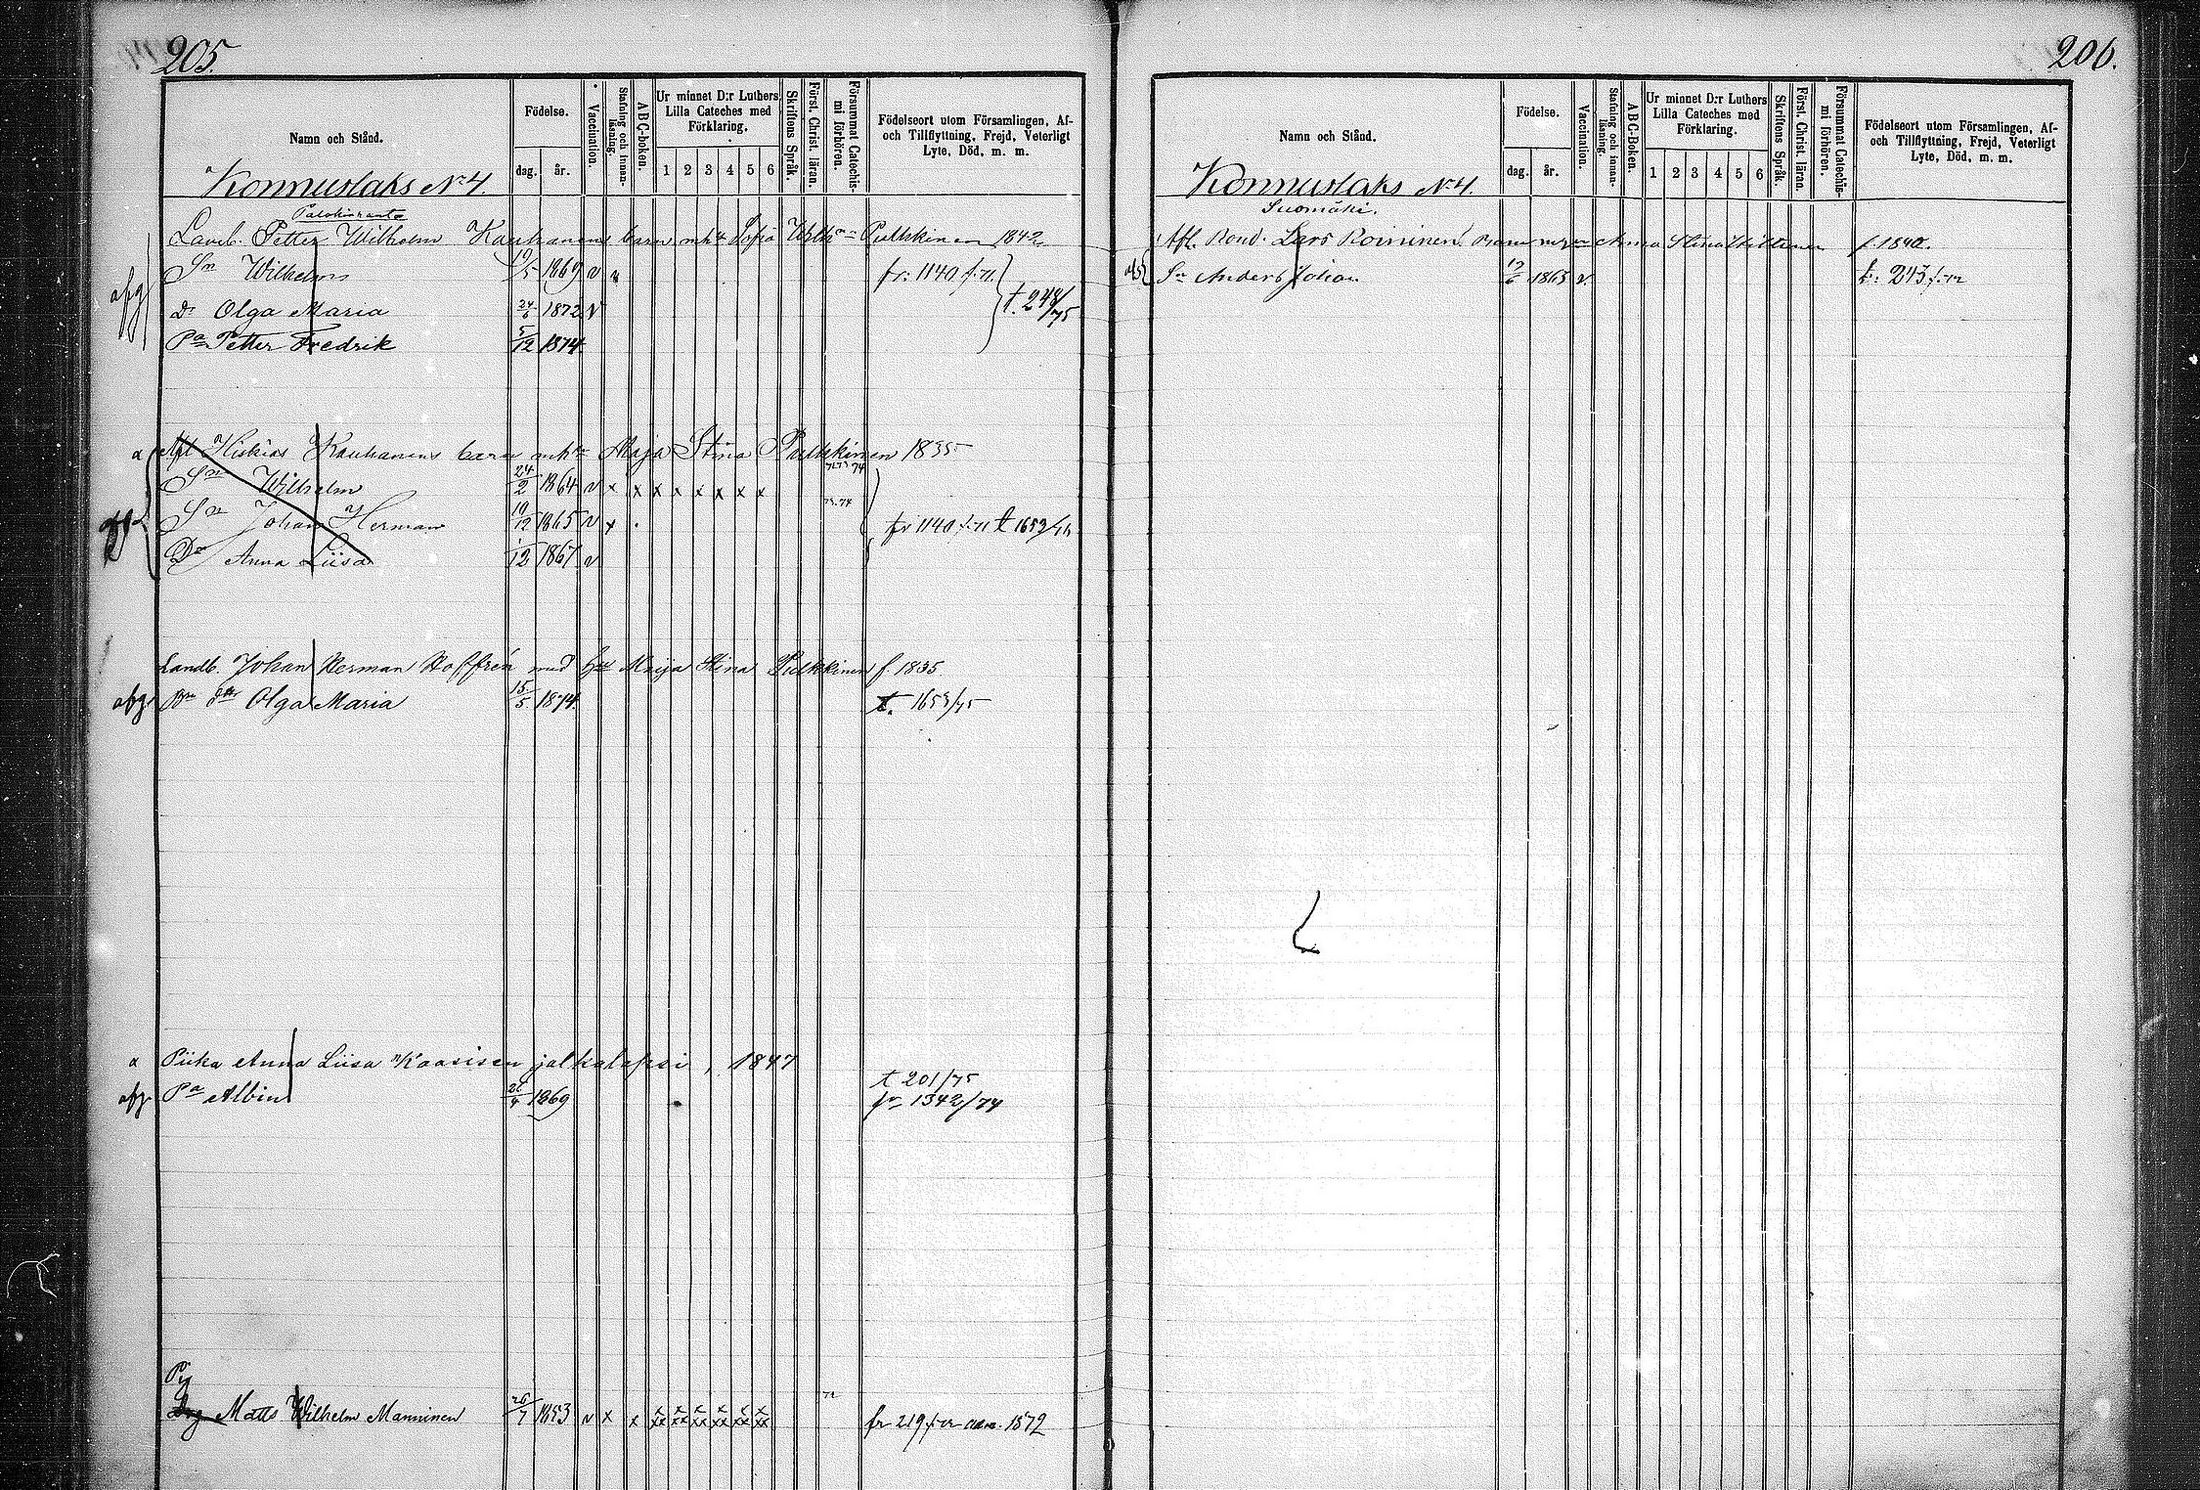 205.
Namn och Stånd.
Födelse.
dag. år.
Vaccination.
Stafning och innan-läsning.
ABC-boken.
Ur minnet D:r Luthers
Lilla Cateches med
Förklaring.
1 2 3 4 5 6
Skriftens Språk.
Först. Christ. läran.
Försummat Catechis-
mi förhören.
Födelseort utom Församlingen, Af-
och Tillflyttning, Frejd, Veterligt
Lyte, Död, m. m.
Konnuslaks No 4
Petter Wilhelm Kauhanens barn Sofia Pulkkinen 1842
Sn Wilhelm 19/5 1869 v fr. 1140 f. 71
afg Dr Olga Maria 24/6 1872 v t. 248/75
Pa Petter Fredrik 5/12 1874
a Afl Kauhanens barn Maja Stina Pulkkinen 1835
Sn Wilhelm 24/2 1864 v x x x x x x x x
Sn Johan Herman 10/12 1865 v x fr 1140 f. 71 t 1653/75
Dr Anna Liisa 12 1867 v
Landb. Johan Herman Hoffrén med Maija Stina Pulkkinen f. 1835.
afg. Olga Maria 15/5 1874. t. 1653/75
a Piika Anna Liisa Kaasisen jalkalapsi, 1847
t 201/75
afg. Pa Albin 1869 fr 1342/74
Pig
Drg Matts Wilhelm Manninen 26/7 1853 v x x fr 219 1872
206.
Namn och Stånd.
Födelse.
dag. år.
Vaccination.
Stafning och innan-läsning.
ABC-Boken.
Ur minnet D:r Luthers
Lilla Cateches med
Förklaring.
1 2 3 4 5 6
Skriftens Språk.
Först. Christ. läran.
Försummat Catechis-
mi förhören.
Födelseort utom Församlingen, Af-
och Tillflyttning, Frejd, Veterligt
Lyte, Död, m. m.
Konnuslaks No 4.
Suomäki.
Afl. Bond. Lars Roininens Barn Anna Stina f. 1840.
Sn Anders Johan 1865 v. t. 243 f. 72